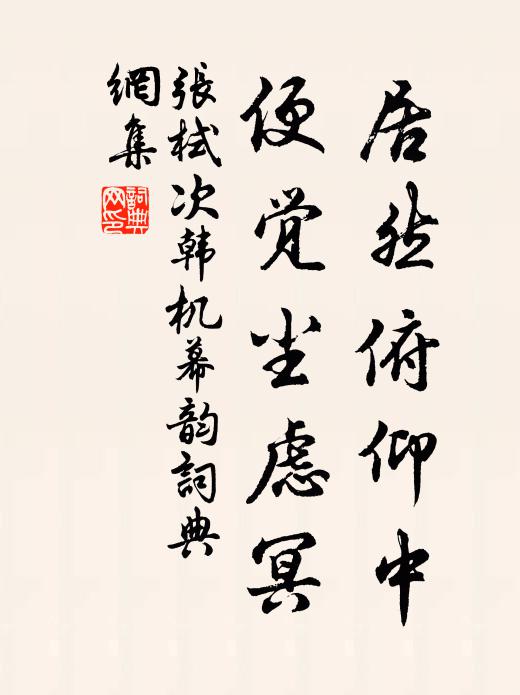 居然俯仰中
便觉尘虑冥
張栻次韩机幕韵詞典
網集
詞典网印